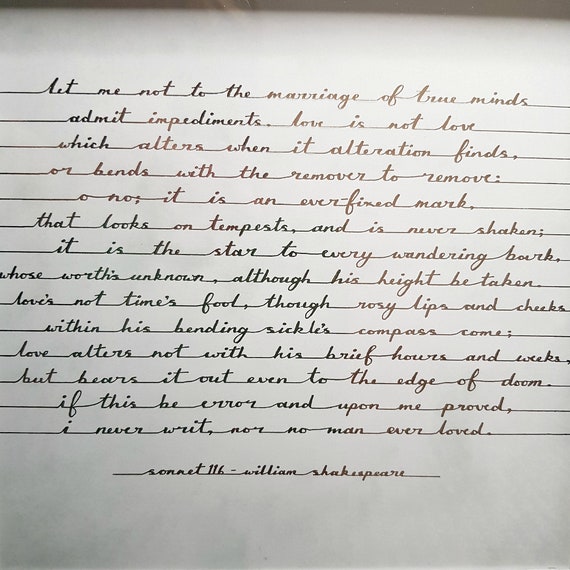 let me not to the marriage of true minds
admit impediments. love is not love
which alters when it alteration finds,
or bends with the remover to remove:
o no; it is an ever-fixed mark,
that looks on tempests, and is never shaken;
it is the star to every wandering bark,
whose worth's unknown, although his height be taken.
love's not time's fool, though rosy lips and cheeks
within his bending sickle's compass come;
love alters not with his brief hours and weeks,
but bears it out even to the edge of doom.
if this be error and upon me proved,
i never writ, nor no man ever loved.
sonnet 116 - william shakespeare